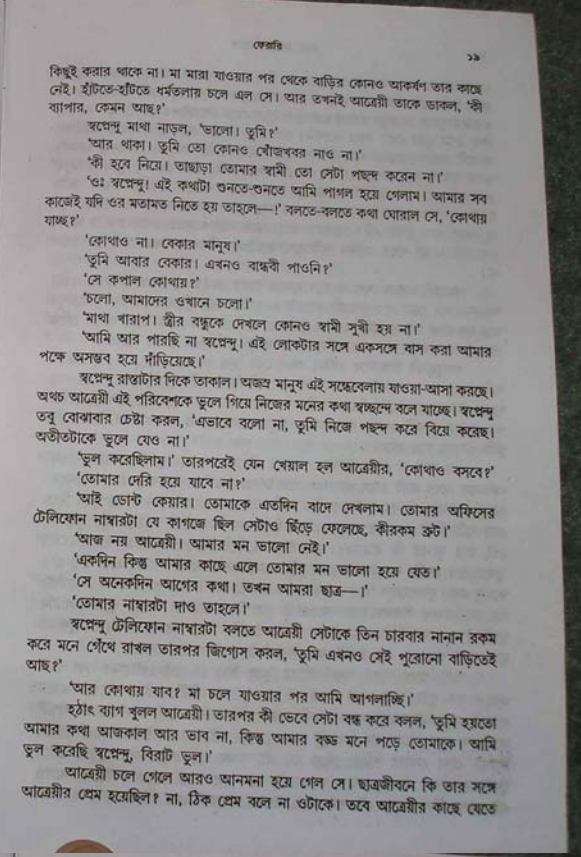 ফেরারি
১৯
কিছুই করার থাকে না। মা মারা যাওয়ার পর থেকে বাড়ির কোনও আকর্ষণ তার কাছে
নেই। হাঁটতে-হাঁটতে ধর্মতলায় চলে এল সে। আর তখনই আত্রেয়ী তাকে ডাকল, ‘কী
ব্যাপার, কেমন আছ?’
স্বপ্নেন্দু মাথা নাড়ল, ‘ভালো। তুমি?’
‘আর থাকা। তুমি তো কোনও খোঁজখবর নাও না।’
‘কী হবে নিয়ে। তাছাড়া তোমার স্বামী তো সেটা পছন্দ করেন না।’
‘ওঃ স্বপ্নেন্দু! এই কথাটা শুনতে-শুনতে আমি পাগল হয়ে গেলাম। আমার সব
কাজেই যদি ওর মতামত নিতে হয় তাহলে—!’ বলতে-বলতে কথা ঘোরাল সে, ‘কোথায়
যাচ্ছ?’
‘কোথাও না। বেকার মানুষ।’
‘তুমি আবার বেকার। এখনও বান্ধবী পাওনি?’
‘সে কপাল কোথায়?’
‘চলো, আমাদের ওখানে চলো।’
‘মাথা খারাপ। স্ত্রীর বন্ধুকে দেখলে কোনও স্বামী সুখী হয় না।’
‘আমি আর পারছি না স্বপ্নেন্দু। এই লোকটার সঙ্গে একসঙ্গে বাস করা আমার
পক্ষে অসম্ভব হয়ে দাঁড়িয়েছে।’
স্বপ্নেন্দু রাস্তাটার দিকে তাকাল। অজস্র মানুষ এই সন্ধেবেলায় যাওয়া-আসা করছে।
অথচ আত্রেয়ী এই পরিবেশকে ভুলে গিয়ে নিজের মনের কথা স্বচ্ছন্দে বলে যাচ্ছে। স্বপ্নেন্দু
তবু বোঝাবার চেষ্টা করল, ‘এভাবে বলো না, তুমি নিজে পছন্দ করে বিয়ে করেছ।
অতীতটাকে ভুলে যেও না।’
‘ভুল করেছিলাম।’ তারপরেই যেন খেয়াল হল আত্রেয়ীর, ‘কোথাও বসবে?’
‘তোমার দেরি হয়ে যাবে না?’
‘আই ডোন্ট কেয়ার। তোমাকে এতদিন বাদে দেখলাম। তোমার অফিসের
টেলিফোন নাম্বারটা যে কাগজে ছিল সেটাও ছিঁড়ে ফেলেছে, কীরকম ব্রুট।’
‘আজ নয় আত্রেয়ী। আমার মন ভালো নেই।’
‘একদিন কিন্তু আমার কাছে এলে তোমার মন ভালো হয়ে যেত।’
‘সে অনেকদিন আগের কথা। তখন আমরা ছাত্র—।’
‘তোমার নাম্বারটা দাও তাহলে।’
স্বপ্নেন্দু টেলিফোন নাম্বারটা বলতে আত্রেয়ী সেটাকে তিন চারবার নানান রকম
করে মনে গেঁথে রাখল তারপর জিগ্যেস করল, ‘তুমি এখনও সেই পুরোনো বাড়িতেই
আছ?’
‘আর কোথায় যাব? মা চলে যাওয়ার পর আমি আগলাচ্ছি।’
হঠাৎ ব্যাগ খুলল আত্রেয়ী। তারপর কী ভেবে সেটা বন্ধ করে বলল, ‘তুমি হয়তো
আমার কথা আজকাল আর ভাব না, কিন্তু আমার বড্ড মনে পড়ে তোমাকে। আমি
ভুল করেছি স্বপ্নেন্দু, বিরাট ভুল।’
আত্রেয়ী চলে গেলে আরও আনমনা হয়ে গেল সে। ছাত্রজীবনে কি তার সঙ্গে
আত্রেয়ীর প্রেম হয়েছিল? না, ঠিক প্রেম বলে না ওটাকে। তবে আত্রেয়ীর কাছে যেতে